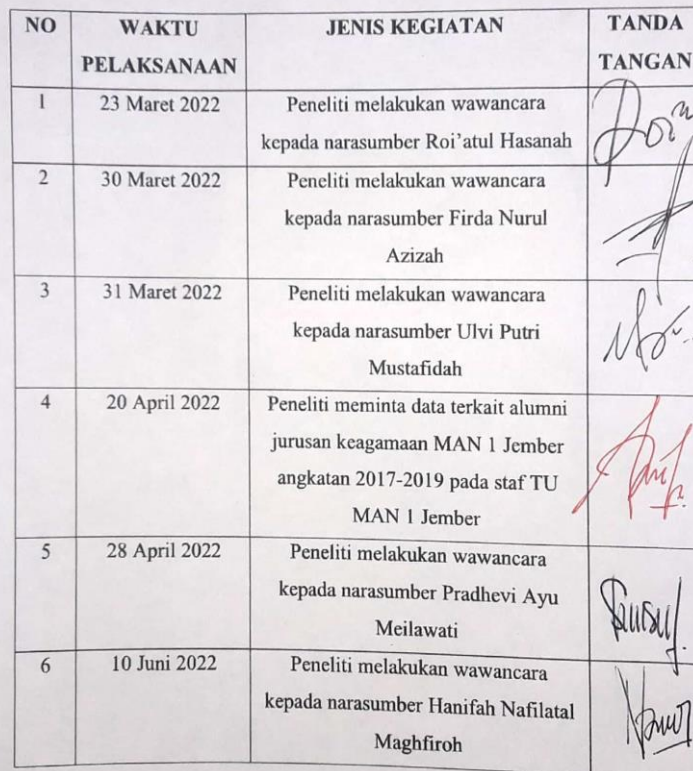 NO WAKTU PELAKSANAAN JENIS KEGIATAN TANDA TANGAN
1 23 Maret 2022 Peneliti melakukan wawancara
kepada narasumber Roi'atul Hasanah
2 30 Maret 2022 Peneliti melakukan wawancara
kepada narasumber Firda Nurul
Azizah
3 31 Maret 2022 Peneliti melakukan wawancara
kepada narasumber Ulvi Putri
Mustafidah
4 20 April 2022 Peneliti meminta data terkait alumni
jurusan keagamaan MAN 1 Jember
angkatan 2017-2019 pada staf TU
MAN 1 Jember
5 28 April 2022 Peneliti melakukan wawancara
kepada narasumber Pradhevi Ayu
Meilawati
6 10 Juni 2022 Peneliti melakukan wawancara
kepada narasumber Hanifah Nafilatal
Maghfiroh